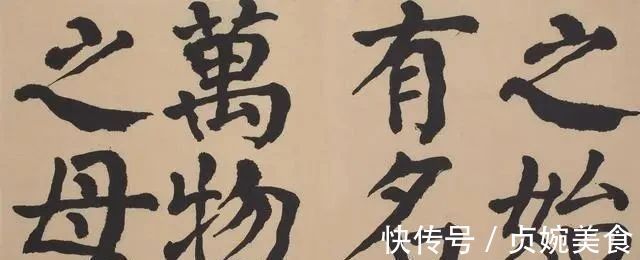 之始
有名
萬物
之母
快传号 / 贞婉美食